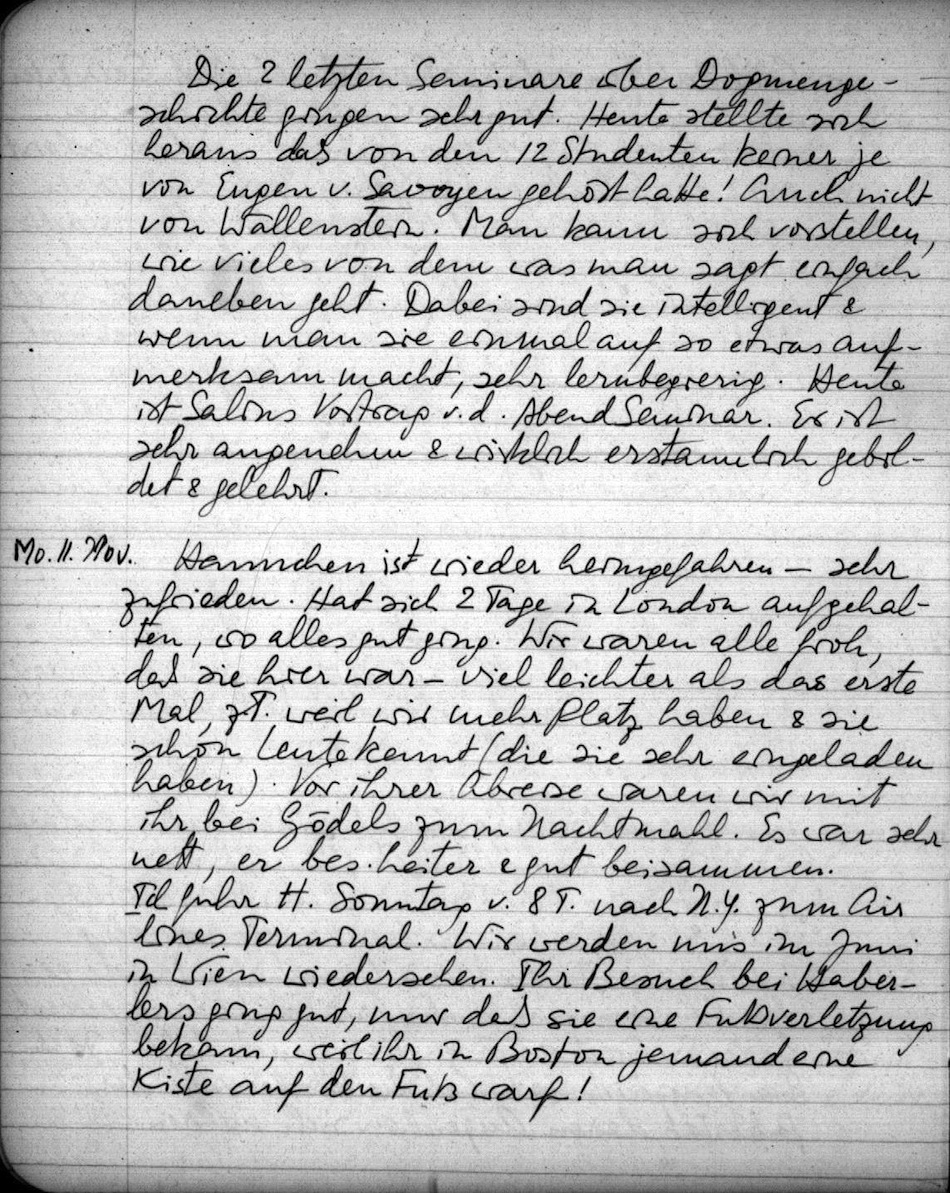 Die 2 letzten Seminare über Dogmenge-
schichte gingen sehr gut. Heute stellte sich
heraus daß von den 12 Studenten keiner je
von Eugen v. Savoyen gehört hatte! Auch nicht
von Wallenstein. Man kann sich vorstellen,
wie vieles von dem was man sagt einfach
daneben geht. Dabei sind sie intelligent &
wenn man sie einmal auf so etwas auf-
merksam macht, sehr lernbegierig. Heute
ist Salins Vortrag v. d. Abend Seminar. Er ist
sehr angenehm & wirklich erstaunlich gebil-
det & gelehrt.
Mo. 11. Nov. Hannchen ist wieder heimgefahren – sehr
zufrieden. Hat sich 2 Tage in London aufgehal-
ten, wo alles gut ging. Wir waren alle froh,
daß sie hier war – viel leichter als das erste
Mal, z.T. weil wir mehr Platz haben & sie
schon Leute kennt (die sie sehr eingeladen
haben). Vor ihrer Abreise waren wir mit
ihr bei Gödels zum Nachtmahl. Es war sehr
nett, er bes. heiter & gut beisammen.
Ich fuhr H. Sonntag v. 8 T. nach N.Y. zum Air
lines Terminal. Wir werden uns im Juni
in Wien wiedersehen. Ihr Besuch bei Haber-
lers ging gut, nur daß sie eine Fußverletzung
bekam, weil ihr in Boston jemand eine
Kiste auf den Fuß warf!